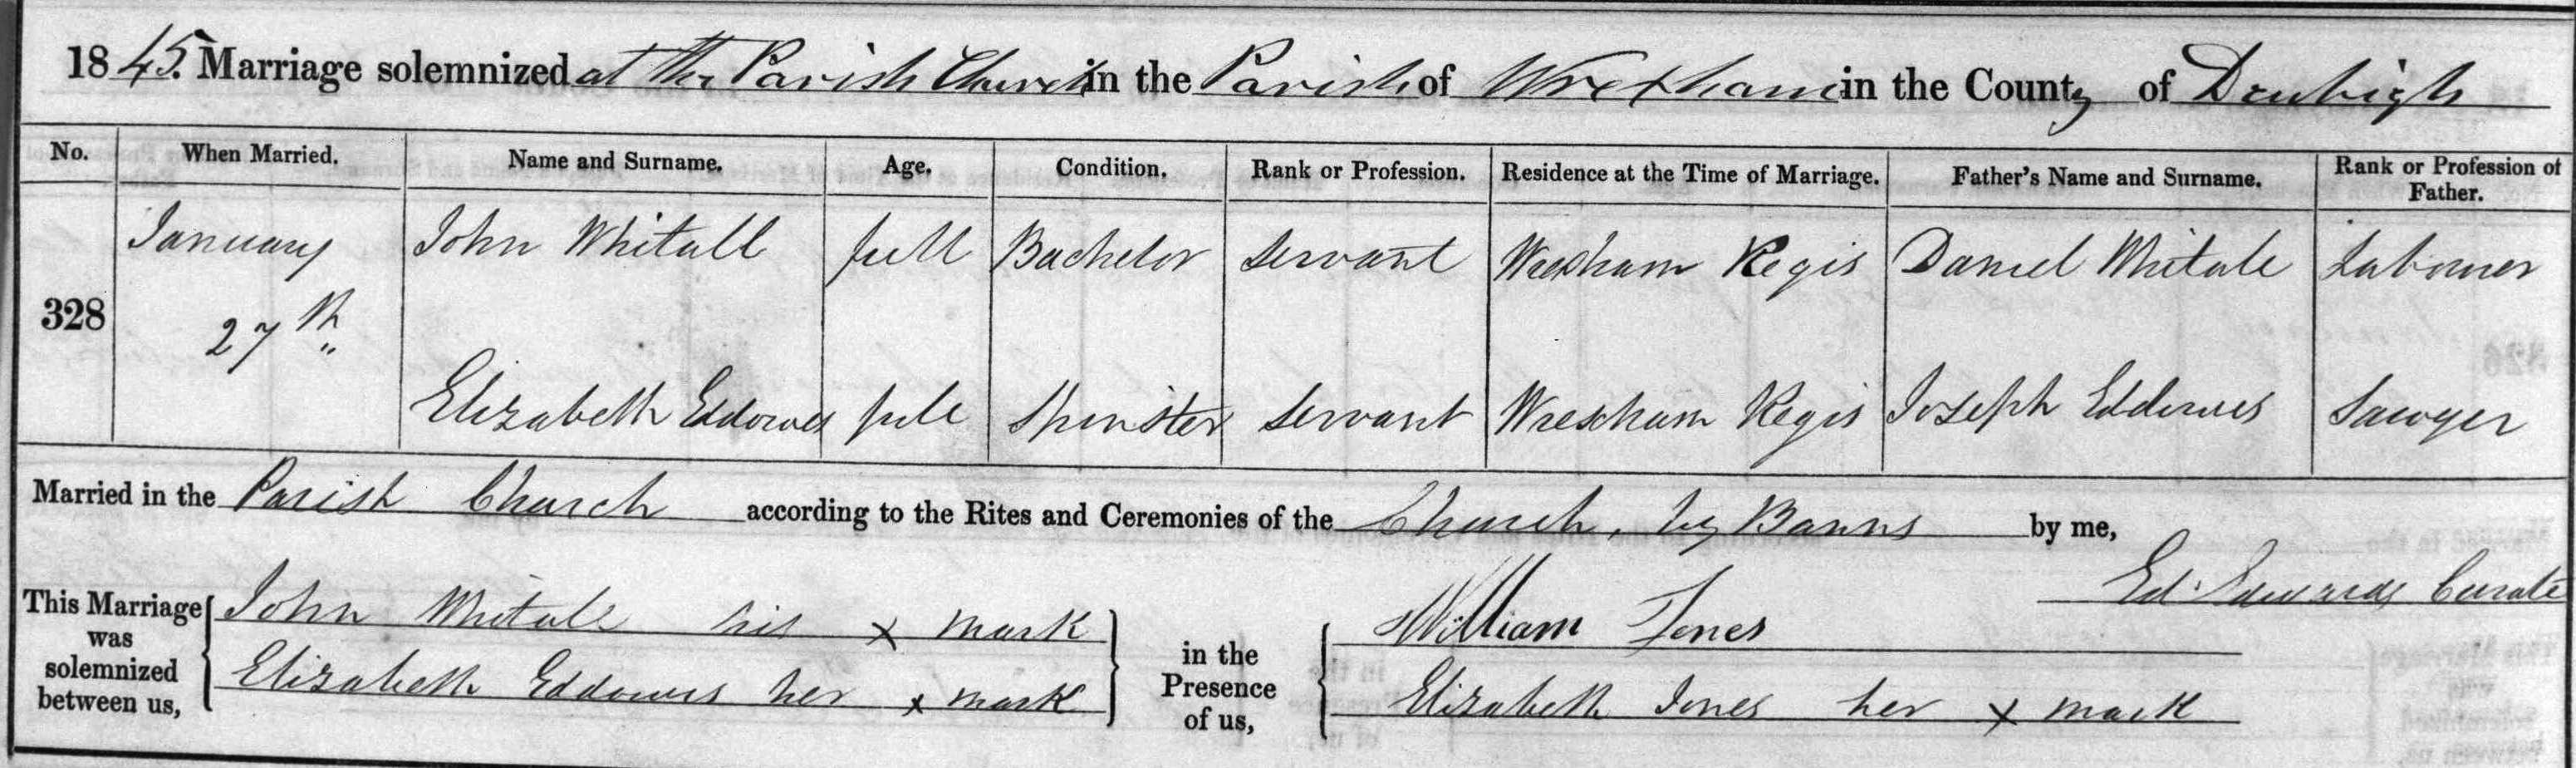 1845. Marriage solemnized at the Parish Church in the Parish of Wrexham in the County of Denbigh
No. When Married. Name and Surname. Age. Condition. Rank or Profession. Residence at the Time of Marriage. Father's Name and Surname. Rank or Profession of Father.
328 January 27th John Whitall full Bachelor Servant Wrexham Regis Daniel Whitale Labourer
Elizabeth Eddowes full Spinster Servant Wrexham Regis Joseph Eddowes Sawyer
Married in the Parish Church according to the Rites and Ceremonies of the Church, by Banns by me,
Ed. Edwards Curate
This Marriage was solemnized between us, John Whitale his x mark
Elizabeth Eddowes her x mark
in the Presence of us, William Jones
Elizabeth Jones her x mark